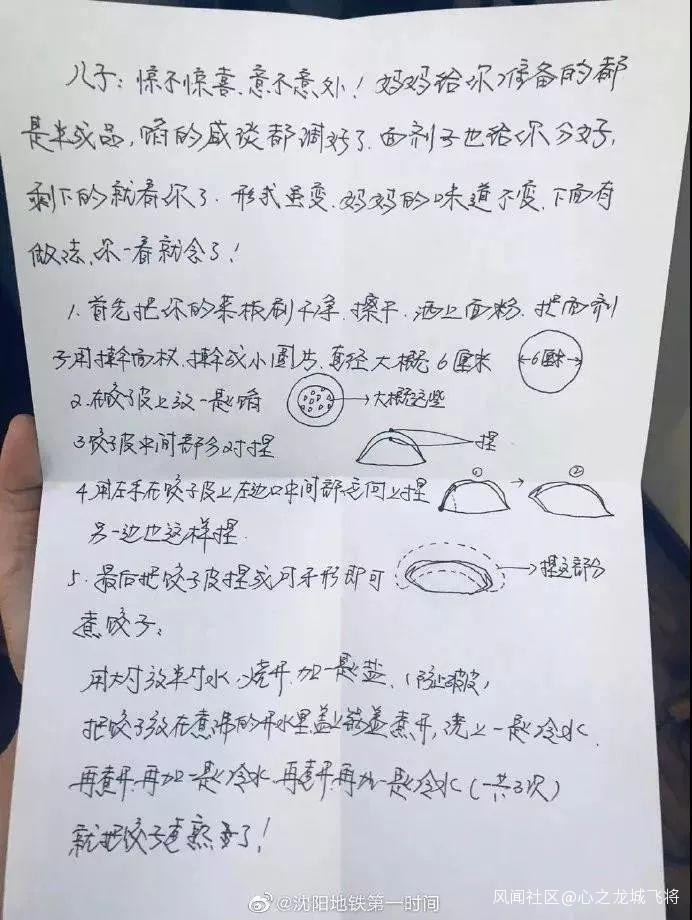 儿子：惊不惊喜、意不意外！妈妈给你准备的都
是半成品，馅的咸谈都调好了、面剂子也给你分好，
剩下的就看你了．形式虽变、妈妈的味道不变、下面有
做法、你一看就会了！
1、首先把你的菜板刷干净、擦干、洒上面粉、把面剂
子用擀面杖、擀成小圆片、直径大概6厘米
6厘米
2、在饺子皮上放一匙馅
大概这些
3、饺子皮中间部分对捏
捏
4、用左手在饺子皮上左边口中间部向上捏
① → ②
另一边也这样捏．
5、最后把饺子皮捏成月牙形即可
捏这部分
煮饺子：
用大勺放半勺水、烧开、加一匙盐、（防止破皮）
把饺子放在煮沸的开水里、盖上锅盖煮开，浇上一匙冷水、
再煮开、再加一匙冷水、再煮开再加一匙冷水（一共3次）
就把饺子煮熟了！
@沈阳地铁第一时间
风闻社区@心之龙城飞将